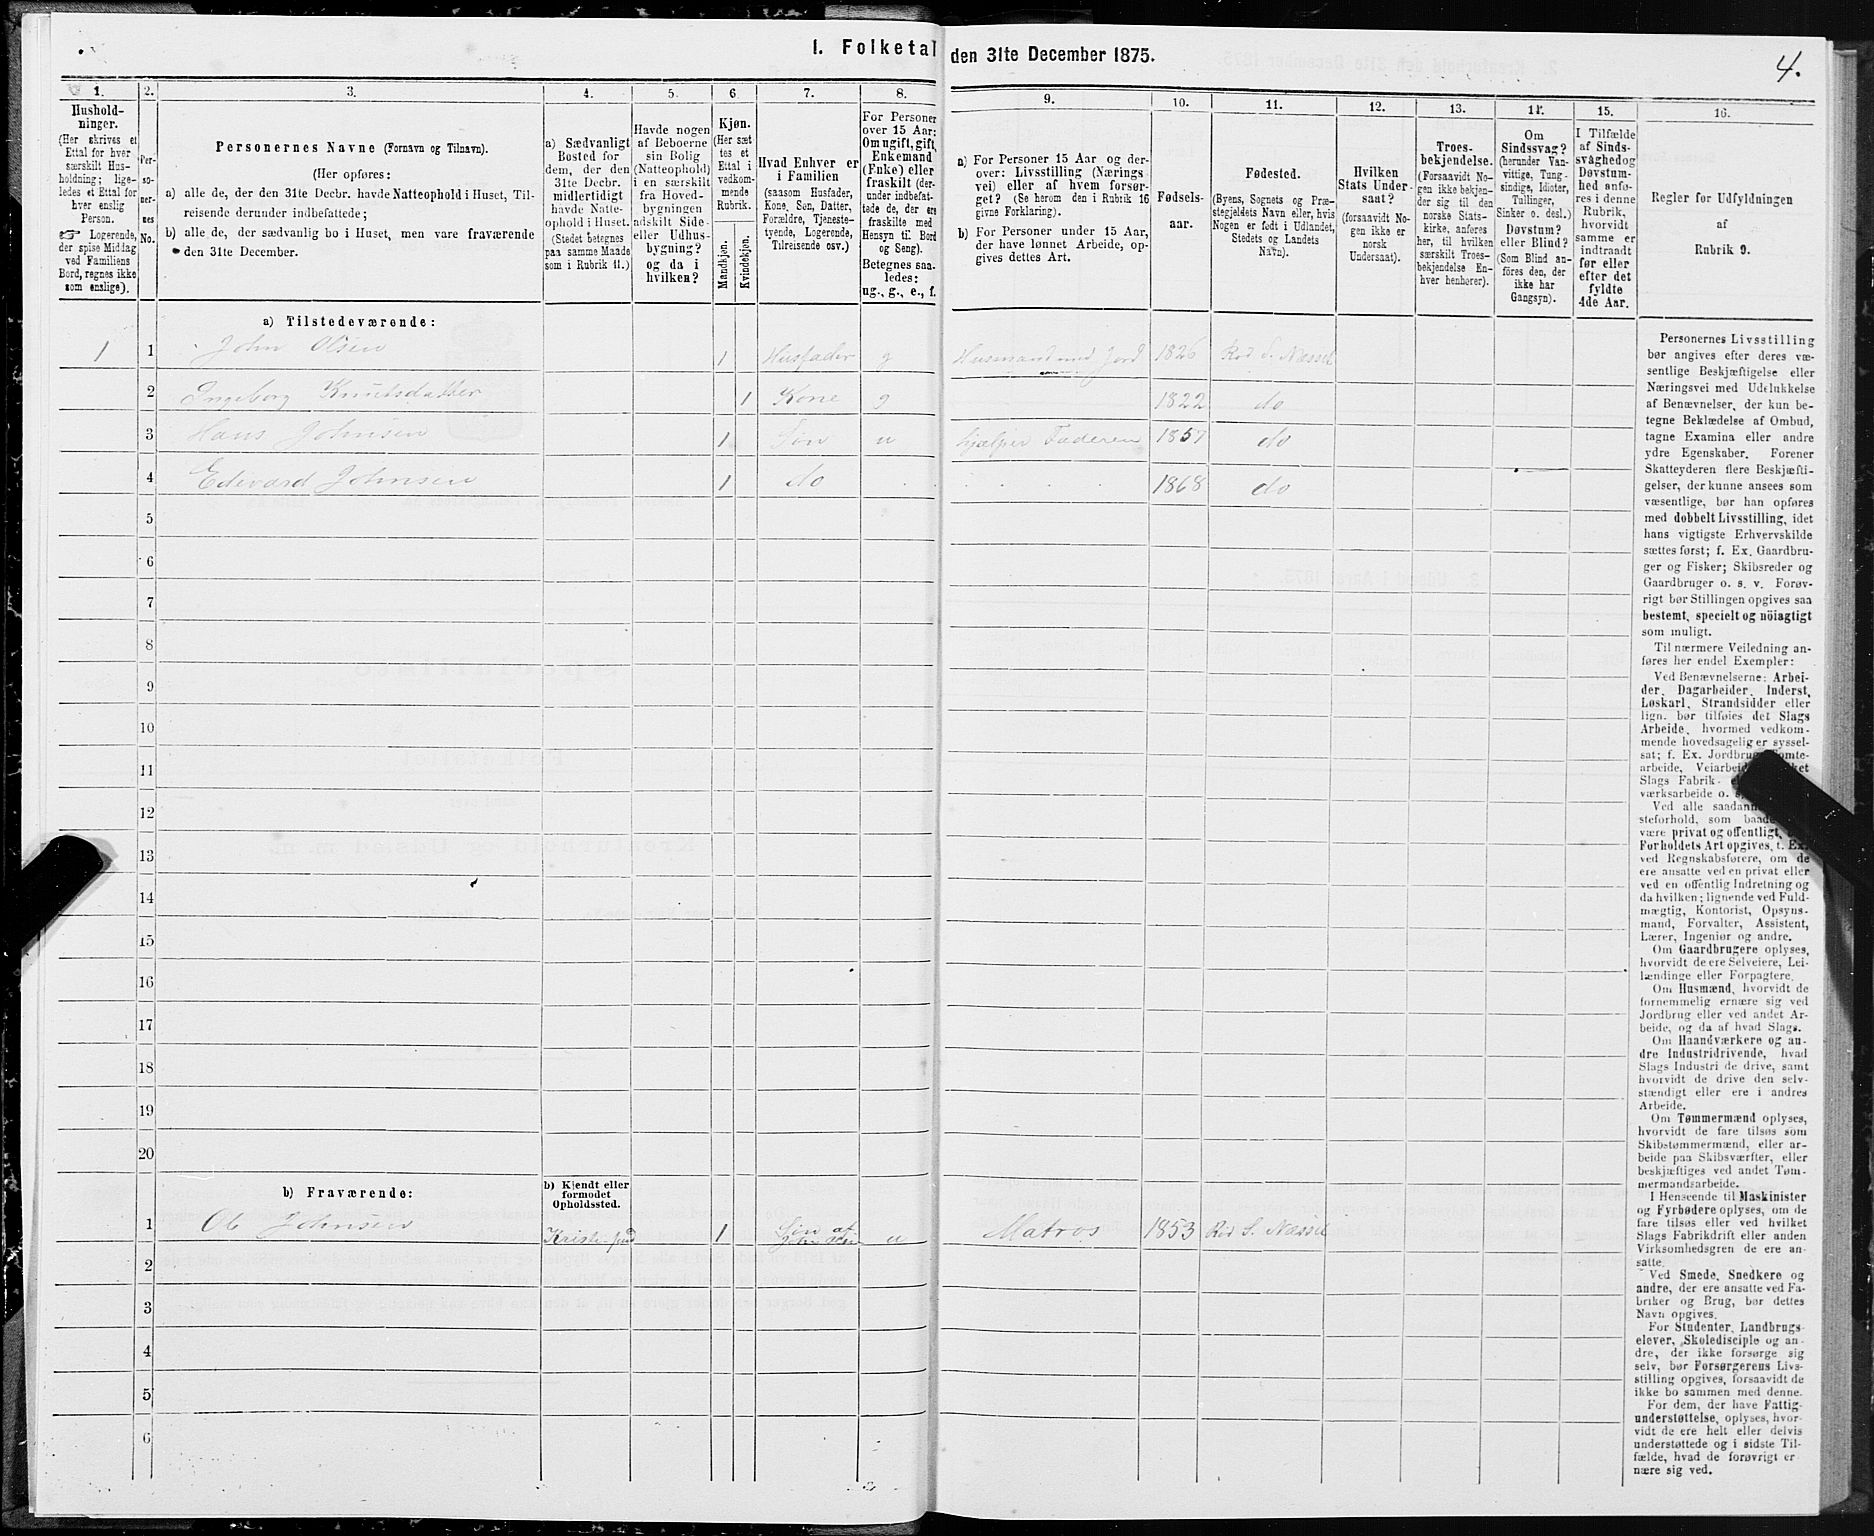 1. Folketal den 31te December 1875.
4.
1.
Hushold-
ninger.
(Her skrives et
Ettal for hver
særskilt Hus-
holdning; lige-
ledes et Ettal for
hver enslig
Person.
☞ Logerende,
der spise Middag
ved Familiens
Bord, regnes ikke
som enslige).
2.
Per-
so-
ner-
nes
No.
3.
Personernes Navne (Fornavn og Tilnavn).
(Her opføres:
a) alle de, der den 31te Decbr. havde Natteophold i Huset, Til-
reisende derunder indbefattede;
b) alle de, der sædvanlig bo i Huset, men vare fraværende
den 31te December.
4.
a) Sædvanligt
Bosted for
dem, der den
31te Decbr.
midlertidigt
havde Natte-
ophold i Huset.
(Stedet betegnes
paa samme Maade
som i Rubrik 11.)
5.
Havde nogen
af Beboerne
sin Bolig
(Natteophold)
i en særskilt
fra Hoved-
bygningen
adskilt Side-
eller Udhus-
bygning?
og da i
hvilken?
6.
Kjøn.
(Her sæt
tes et
Ettal i
vedkom-
mende
Rubrik.
Mandkjøn.
Kvindekjøn.
7.
Hvad Enhver er
i Familien
(saasom Husfader,
Kone, Søn, Datter,
Forældre, Tjeneste-
tyende, Logerende,
Tilreisende osv.)
8.
For Personer
over 15 Aar:
Om ugift, gift,
Enkemand
(Enke) eller
fraskilt (der-
under indbefat-
tede de, der ere
fraskilte med
Hensyn til Bord
og Seng).
Betegnes saa-
ledes:
ug., g., e., f.
9.
a) For Personer 15 Aar og der-
over: Livsstilling (Nærings
vei) eller af hvem forsør-
get? (Se herom den i Rubrik 16
givne Forklaring).
b) For Personer under 15 Aar,
der have lønnet Arbeide, op-
gives dettes Art.
10.
Fødsels-
aar.
11.
Fødested.
(Byens, Sognets og Præ-
stegjeldets Navn eller, hvis
Nogen er født i Udlandet,
Stedets og Landets
Navn).
12.
Hvilken
Stats Under-
saat?
(forsaavidt No-
gen ikke er
norsk
Undersaat).
13.
Troes-
bekjendelse.
(Forsaavidt No-
gen ikke bekjen-
der sig til den
norske Stats-
kirke, anføres
her, til hvilken
særskilt Troes-
bekjendelse En-
hver henhører).
14.
Om
Sindssvag?
(herunder Van-
vittige, Tung-
sindige, Idioter,
Tullinger,
Sinker o. desl.)
Døvstum?
eller Blind?
(Som Blind an-
føres den, der
ikke har
Gangsyn).
15.
I Tilfælde
af Sinds-
svaghed og
Døvstum-
hed anfø-
res i denne
Rubrik,
hvorvidt
samme er
indtraadt
før eller
efter det
fyldte
4de Aar.
16.
Regler for Udfyldningen
af
Rubrik 9.
a) Tilstedeværende:
1 1 John Olsen 1 Husfader g Husmand med Jord 1826 Rød S. Næsset
2 Ingeborg Knutsdatter 1 Kone g 1822 do
3 Hans Johnsen 1 Søn u hjælper Faderen 1857 do
4 Edevard Johnsen 1 do 1868 do
5
6
7
8
9
10
11
12
13
14
15
16
17
18
19
20
b) Fraværende:
b) Kjendt eller
formodet
Opholdssted.
1 Ole Johnsen 1 Søn af u Matros 1853 Rød S. Næsset
2
3
4
5
6
Personernes Livsstilling
bør angives efter deres væ-
sentlige Beskjæftigelse eller
Næringsvei med Udelukkelse
af Benævnelser, der kun be-
tegne Beklædelse af Ombud,
tagne Examina eller andre
ydre Egenskaber. Forener
Skatteyderen flere Beskjæfti-
gelser, der kunne ansees som
væsentlige, bør han opføres
med dobbelt Livsstilling, idet
hans vigtigste Erhvervskilde
sættes først; f. Ex. Gaardbru-
ger og Fisker; Skibsreder og
Gaardbruger o. s. v. Forøv-
rigt bør Stillingen opgives saa
bestemt, specielt og nöiagtigt
som muligt.
Til nærmere Veiledning an-
føres her endel Exempler:
Ved Benævnelserne: Arbei-
der, Dagarbeider, Inderst,
Løskarl, Strandsidder eller
lign. bør tilføies det Slags
Arbeide, hvormed vedkom-
mende hovedsagelig er syssel-
sat; f. Ex. Jordbrug, Tomte-
arbeide, Veiarbeide,
Slags Fabrik-
værksarbeide o. s.
Ved alle saadanne
steforhold, som baade
være privat og offentligt,
Forholdets Art opgives, f. Ex.
ved Regnskabsførere, om de
ere ansatte ved en privat eller
ved en offentlig Indretning og
da hvilken; lignende ved Fuld-
mægtig, Kontorist, Opsyns-
mand, Forvalter, Assistent,
Lærer, Ingeniør og andre.
Om Gaardbrugere oplyses,
hvorvidt de ere Selveiere, Lei-
lændinge eller Forpagtere.
Om Husmænd, hvorvidt de
fornemmelig ernære sig ved
Jordbrug eller ved andet Ar-
beide, og da af hvad Slags.
Om Haandværkere og an-
dre Industridrivende, hvad
Slags Industri de drive, samt
hvorvidt de drive den selv-
stændigt eller ere i andres
Arbeide.
Om Tømmermænd oplyses,
hvorvidt de fare tilsøs som
Skibstømmermænd, eller ar-
beide paa Skibsværfter, eller
beskjæftiges ved andet Tøm-
mermandsarbeide.
I Henseende til Maskinister
og Fyrbødere oplyses, om de
fare tilsøs eller ved hvilket
Slags Fabrikdrift eller anden
Virksomhedsgren de ere an-
satte.
Ved Smede, Snedkere og
andre, der ere ansatte ved Fa-
briker og Brug, bør dettes
Navn opgives.
For Studenter, Landbrugs-
elever, Skoledisciple og an-
dre, der ikke forsørge sig
selv, bør Forsørgerens Livs-
stilling opgives, forsaavidt de
ikke bo sammen med denne.
For dem, der have Fattig-
understøttelse, oplyses, hvor-
vidt de ere helt eller delvis
understøttede og i sidste Til-
fælde, hvad de forøvrigt er-
nære sig ved.